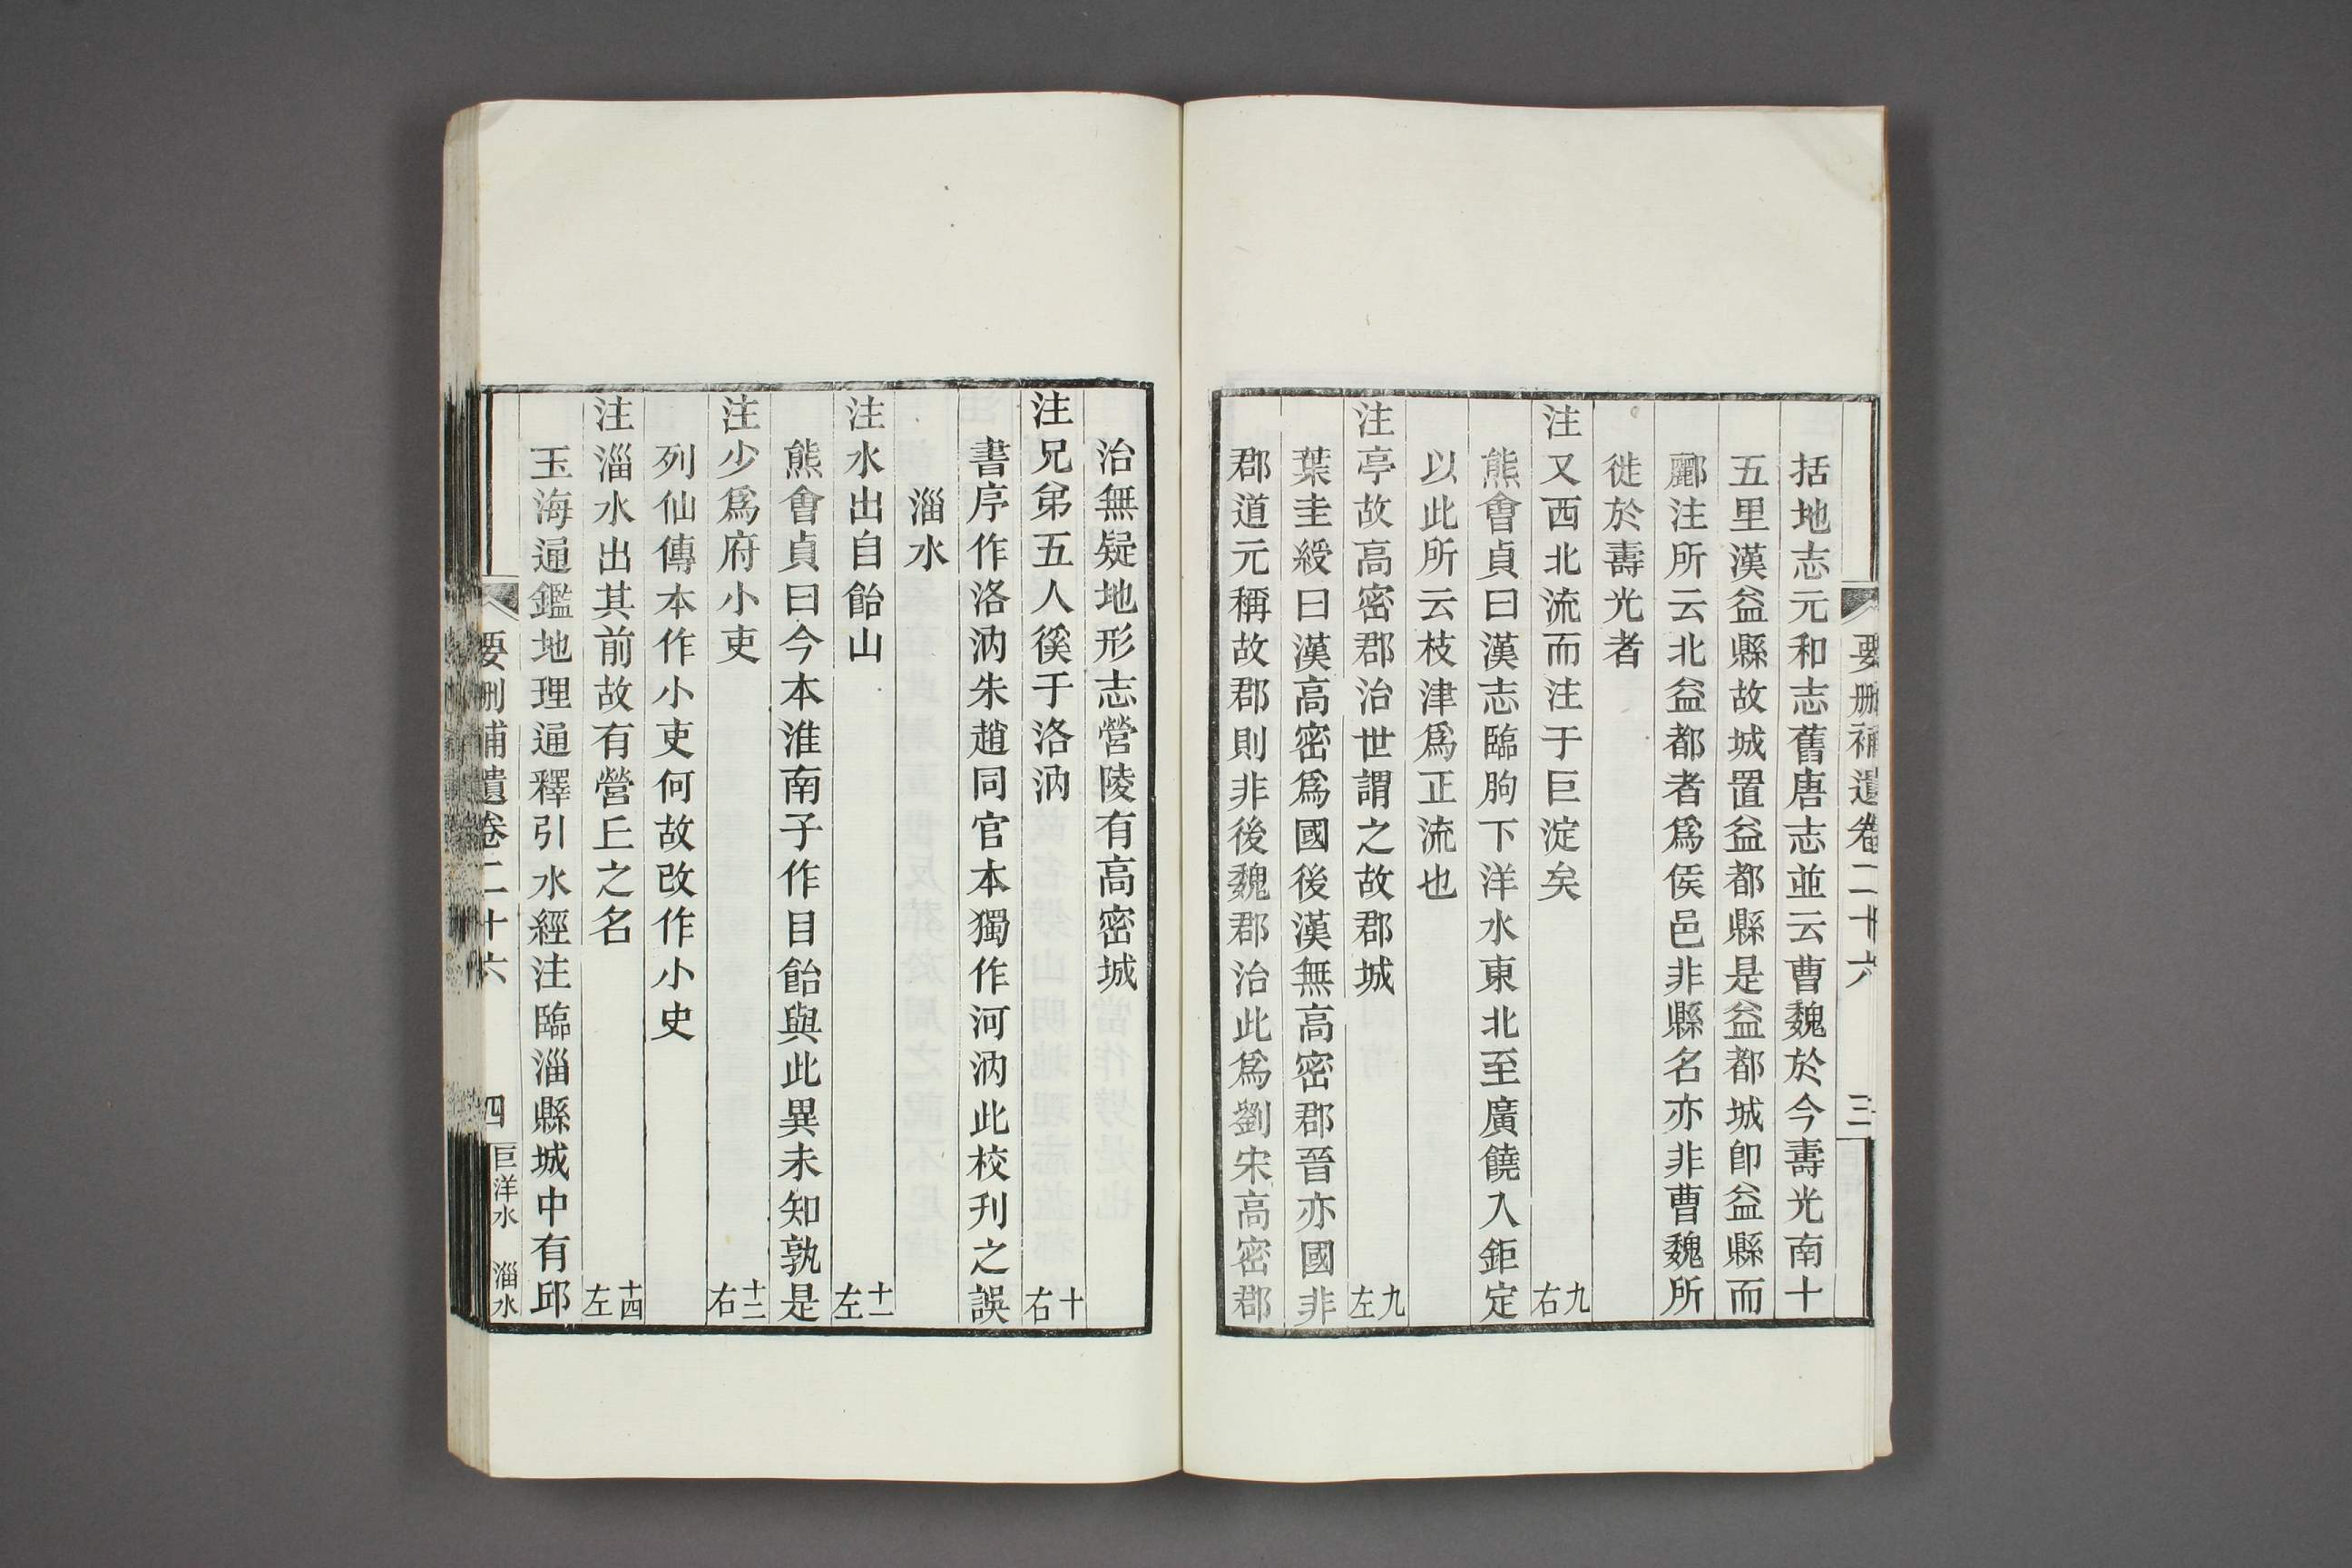 要刪補遺卷二十六 三
括地志元和志舊唐志並云曹魏於今壽光南十
五里漢益縣故城置益都縣是益都城卽益縣而
酈注所云北益都者爲侯邑非縣名亦非曹魏所
徙於壽光者
注又西北流而注于巨淀矣 九右
熊會貞曰漢志臨朐下洋水東北至廣饒入鉅定
以此所云枝津爲正流也
注亭故高密郡治世謂之故郡城 九左
葉圭綬曰漢高密爲國後漢無高密郡晉亦國非
郡道元稱故郡則非後魏郡治此爲劉宋高密郡
治無疑地形志營陵有高密城
注兄弟五人徯于洛汭 十右
書序作洛汭朱趙同官本獨作河汭此校刊之誤
淄水
注水出自飴山 十一左
熊會貞曰今本淮南子作目飴與此異未知孰是
注少爲府小吏 十二右
列仙傳本作小吏何故改作小史
注淄水出其前故有營丘之名 十四左
玉海通鑑地理通釋引水經注臨淄縣城中有邱
要刪補遺卷二十六 四 巨洋水 淄水